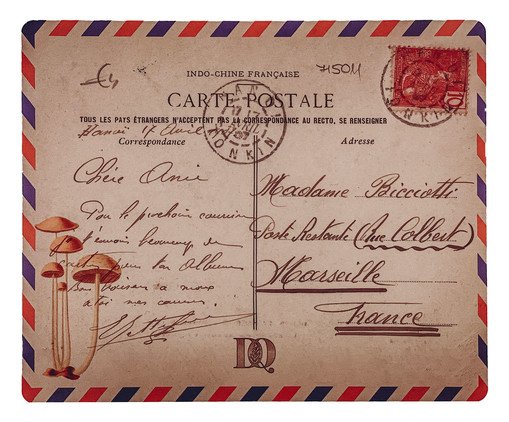 INDO-CHINE FRANÇAISE
7150M
CARTE POSTALE
TOUS LES PAYS ÉTRANGERS N'ACCEPTENT PAS LA CORRESPONDANCE AU RECTO, SE RENSEIGNER
Hanoï 17 Avril
Correspondance
Adresse
HANOI
TONKIN
10
Chère Amie
Par le prochain courrier
j'envoie beaucoup de
cartes pour ton album
Madame Bicciotti
Poste Restante (Rue Colbert)
Marseille
France
DQ